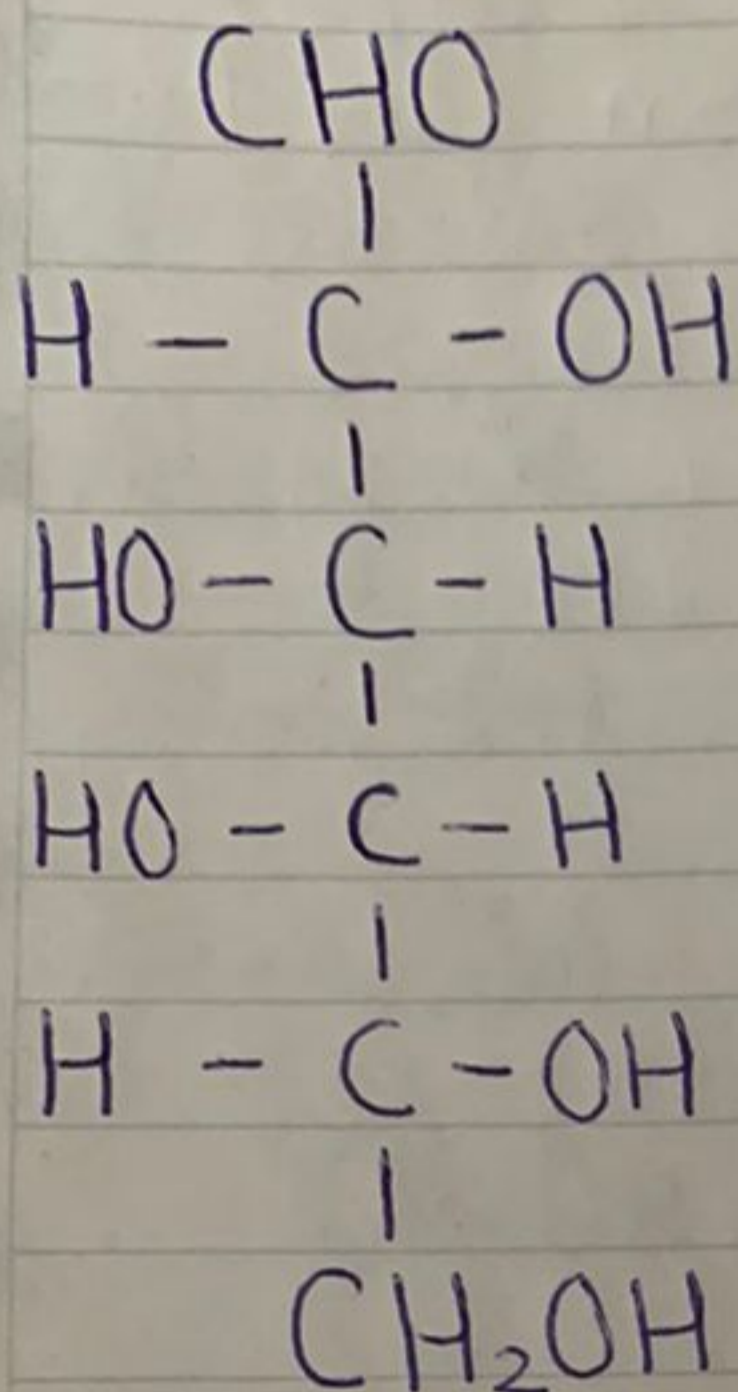 CHO
|
H - C - OH
|
HO - C - H
|
HO - C - H
|
H - C - OH
|
CH₂OH